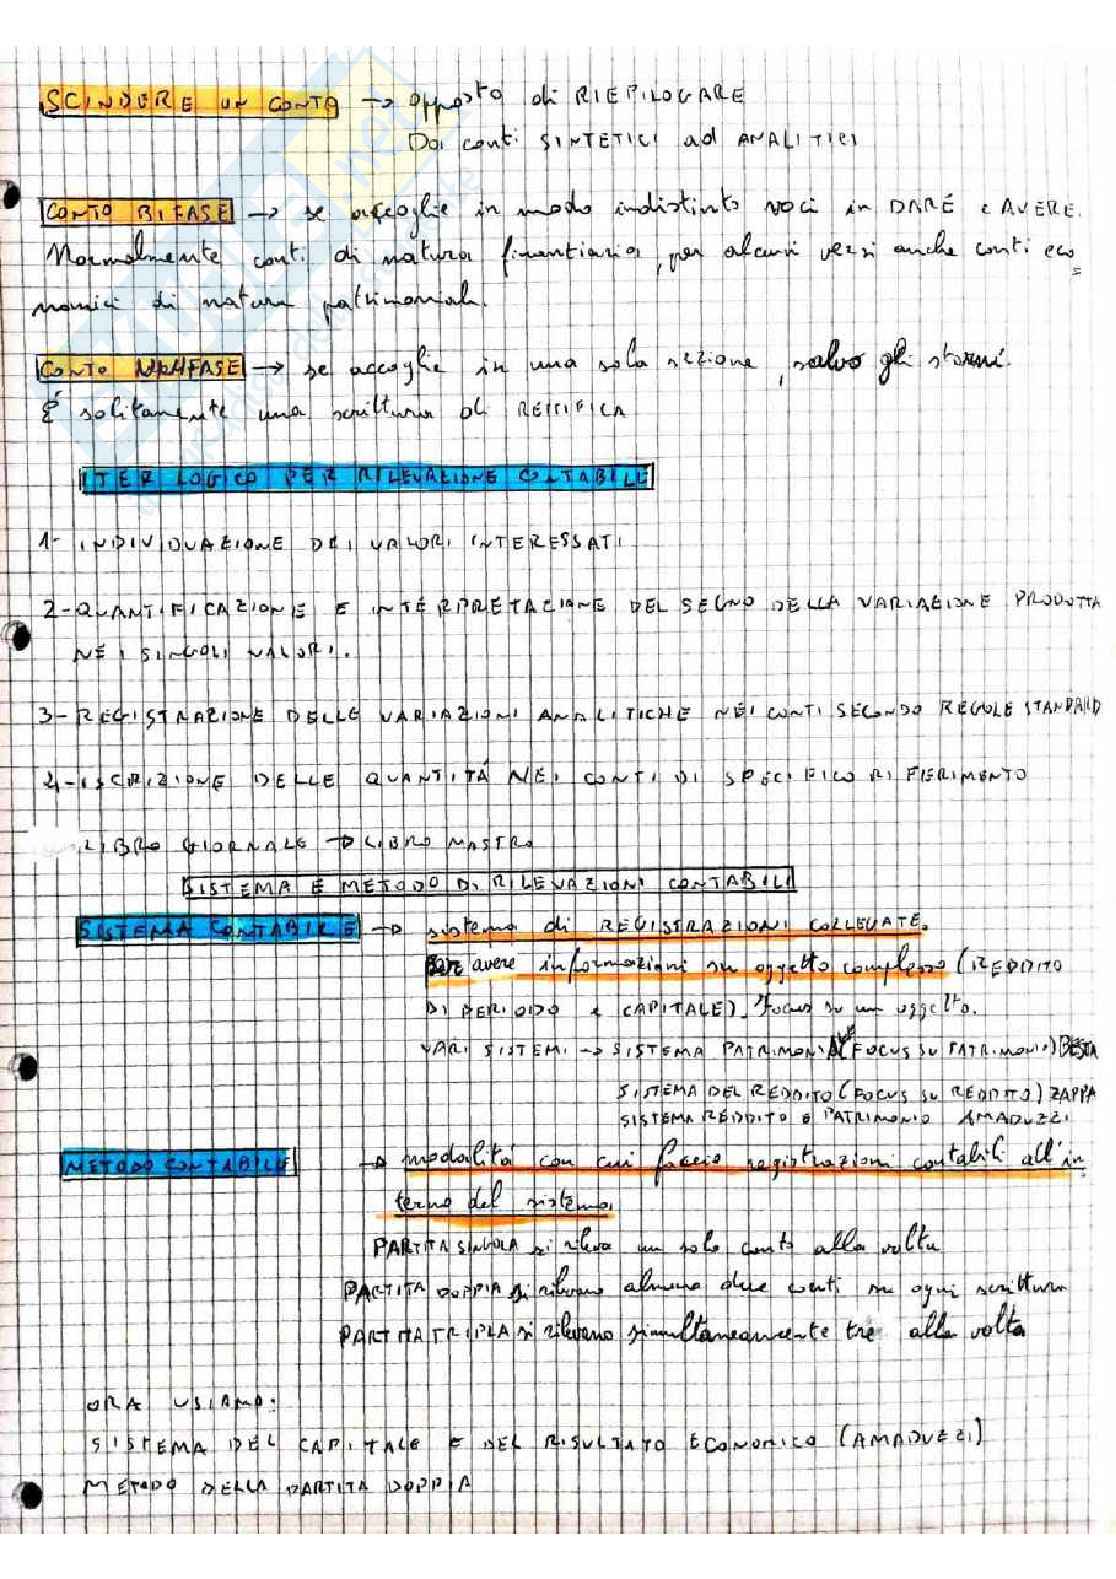 SCINDERE UN CONTO → opposto di RIEPILOGARE
Dai conti SINTETICI ad ANALITICI
CONTO BIFASE → se accoglie in modo indistinto voci in DARE e AVERE.
Normalmente conti di natura finanziaria, per alcuni versi anche conti eco
nomici di natura patrimoniale.
CONTO UNIFASE → se accoglie in una sola sezione, salvo gli storni.
È solitamente una scrittura di RETTIFICA
ITER LOGICO PER RILEVAZIONE CONTABILE
1- INDIVIDUAZIONE DEI VALORI INTERESSATI
2- QUANTIFICAZIONE E INTERPRETAZIONE DEL SEGNO DELLA VARIAZIONE PRODOTTA
NEI SINGOLI VALORI.
3- REGISTRAZIONE DELLE VARIAZIONI ANALITICHE NEI CONTI SECONDO REGOLE STANDARD
4- ISCRIZIONE DELLE QUANTITÁ NEI CONTI DI SPECIFICO RIFIERIMENTO
LIBRO GIORNALE → LIBRO MASTRO
SISTEMA E METODO DI RILEVAZIONI CONTABILI
SISTEMA CONTABILE → sistema di REGISTRAZIONI COLLEGATE.
Per avere informazioni su oggetto complesso (REDDITO
DI PERIODO e CAPITALE). Focus su un oggetto.
VARI SISTEMI → SISTEMA PATRIMONIALE (FOCUS SU PATRIMONIO) BESTA
SISTEMA DEL REDDITO (FOCUS SU REDDITO) ZAPPA
SISTEMA REDDITO e PATRIMONIO AMADUZZI
METODO CONTABILE → modalitá con cui faccio registrazioni contabili all'in
terno del sistema.
PARTITA SINGOLA si rileva un solo conto alla volta
PARTITA DOPPIA si rilevano almeno due conti su ogni scrittura
PARTITA TRIPLA si rilevano simultaneamente tre alla volta
ORA USIAMO:
SISTEMA DEL CAPITALE E DEL RISULTATO ECONOMICO (AMADUZZI)
METODO DELLA PARTITA DOPPIA